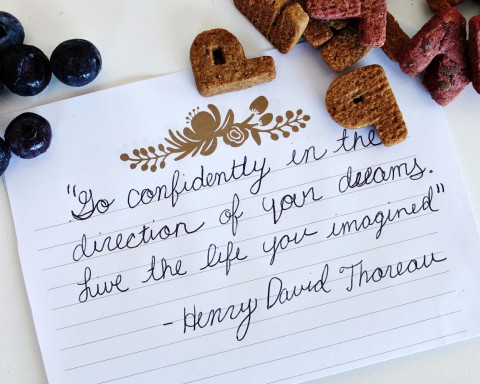 "Go confidently in the
direction of your dreams.
Live the life you imagined"
-Henry David Thoreau